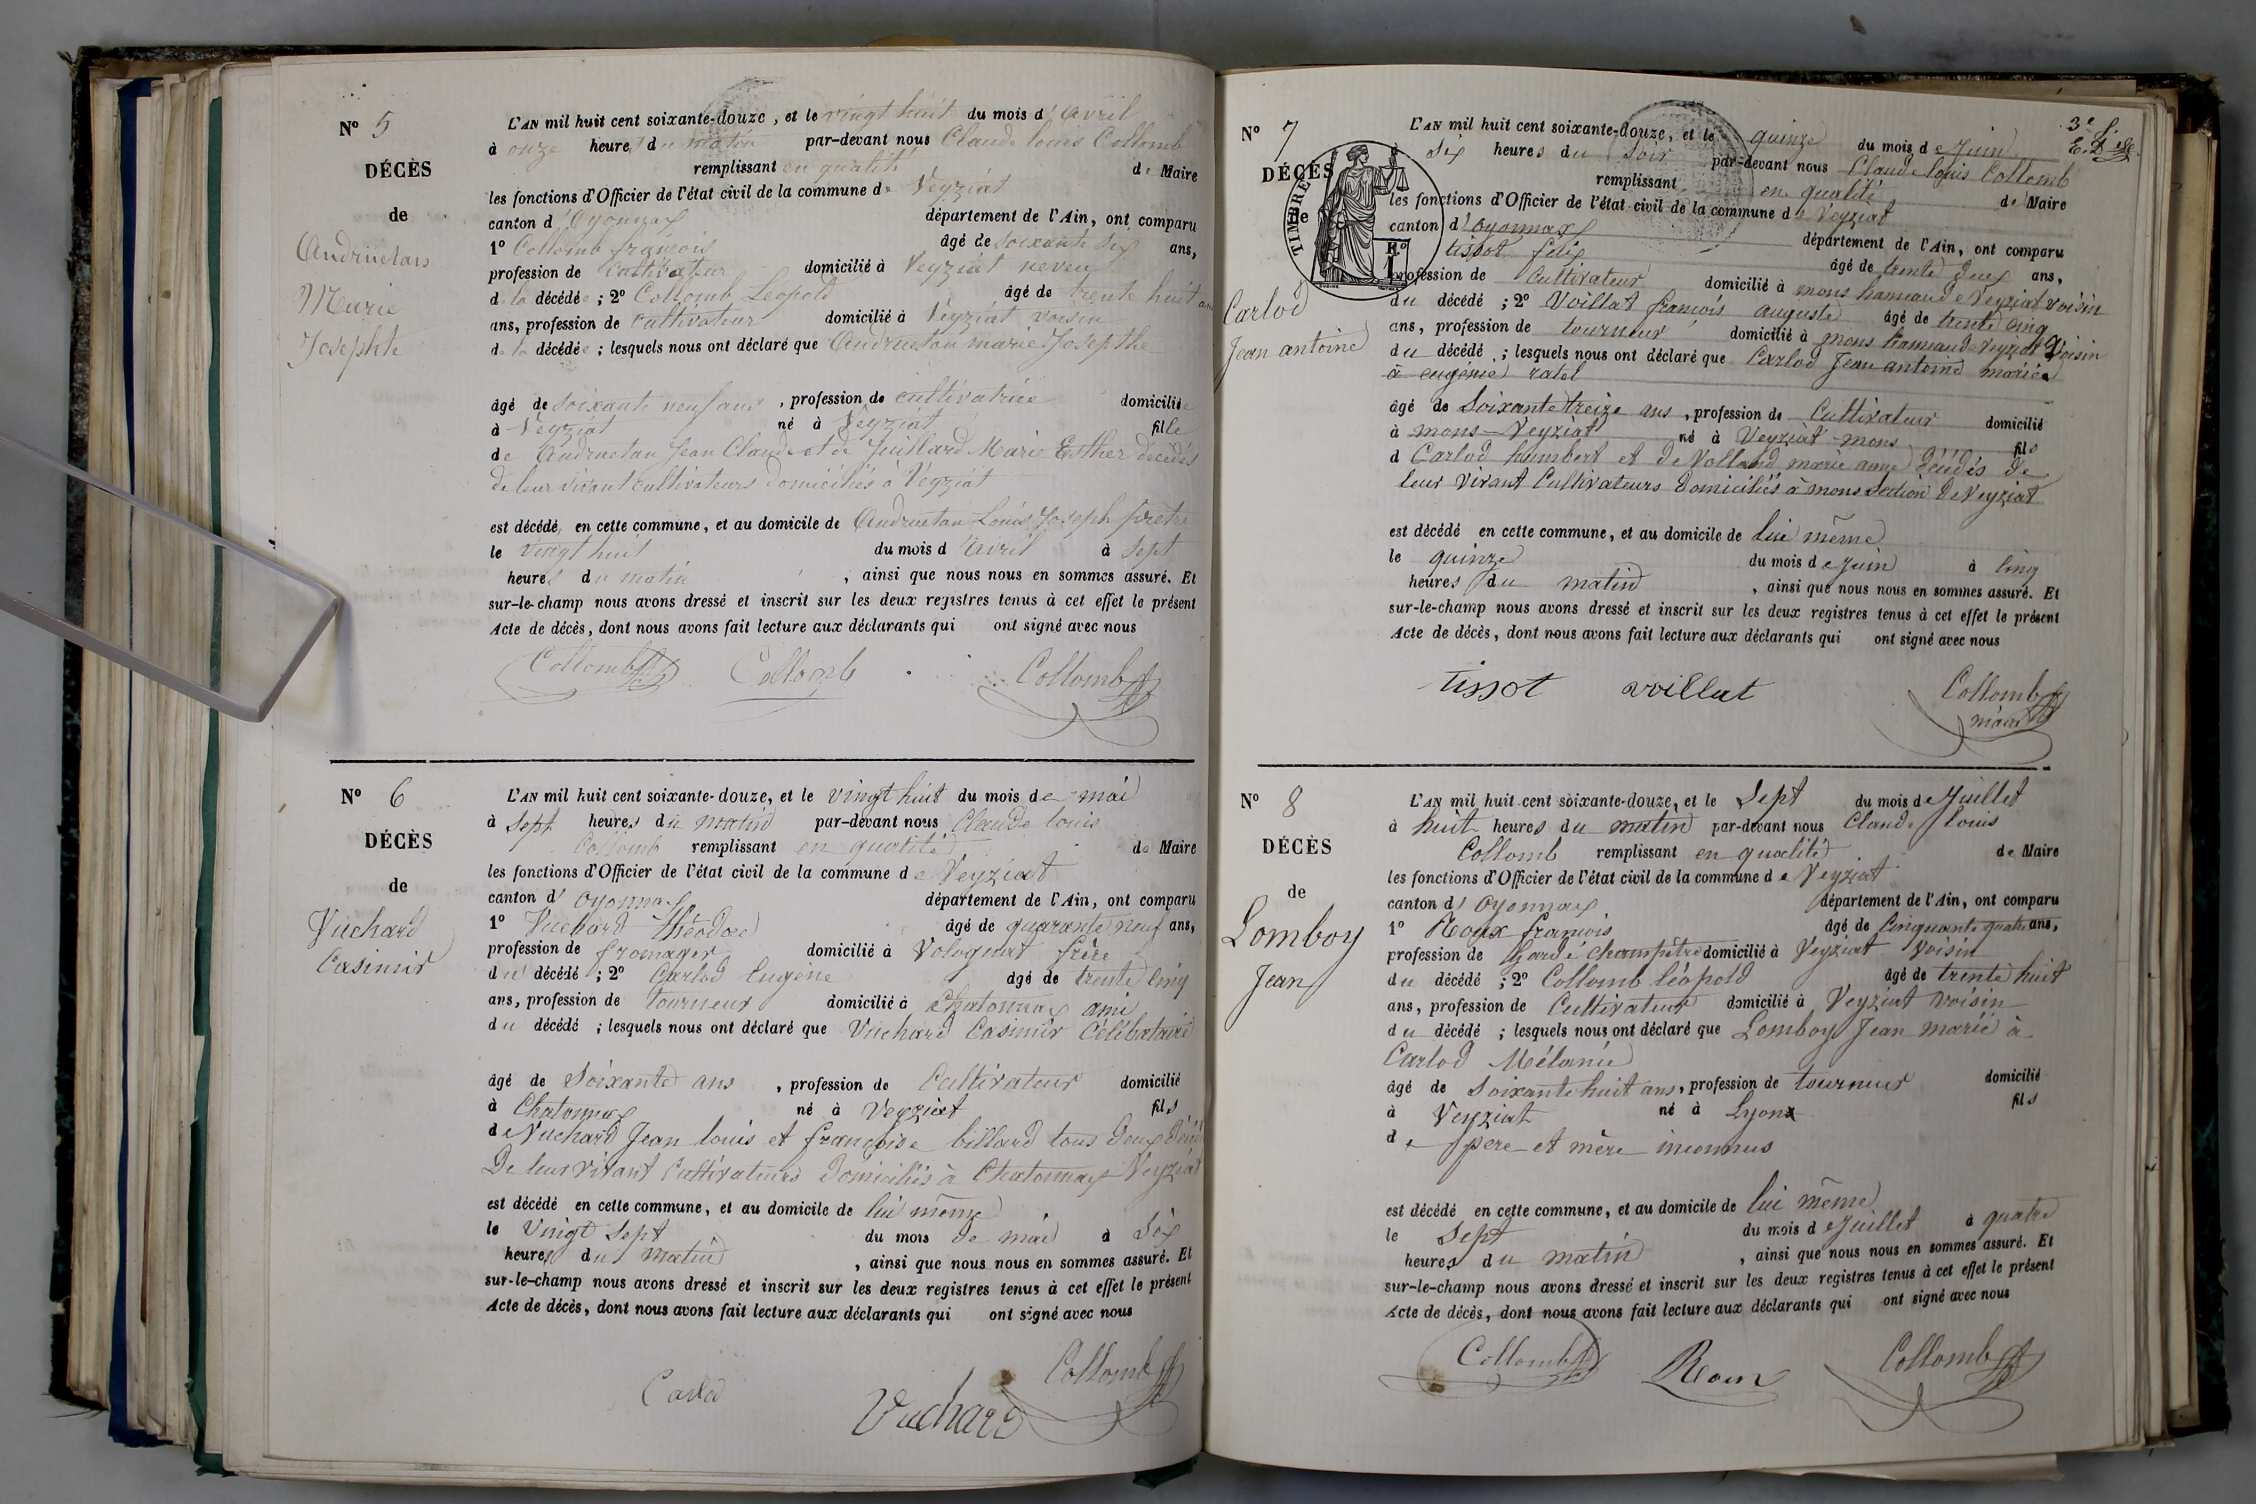 N° 5
DÉCÈS
de
Andruetan
Marie
Josephte
L'AN mil huit cent soixante-douze, et le vingt huit du mois d'avril
à onze heures du matin par-devant nous Claude louis Collomb
remplissant en qualité de Maire
les fonctions d'Officier de l'état civil de la commune de Veyziat
canton d'Oyonnax département de l'Ain, ont comparu
1° Collomb françois âgé de soixante six ans,
profession de cultivateur domicilié à Veyziat neveu
de la décédée ; 2° Collomb Léopold âgé de trente huit ans
ans, profession de cultivateur domicilié à Veyziat voisin
de la décédée ; lesquels nous ont déclaré que Andruetan marie Josephte
âgé de soixante neuf ans, profession de cultivatrice domiciliée
à Veyziat né à Veyziat fille
de Andruetan Jean Claude et de Juillard Marie Esther décédés
de leur vivant cultivateurs domiciliés à Veyziat
est décédé en cette commune, et au domicile de Andruetan Louis Joseph
le vingt huit du mois d'avril à sept
heures du matin, ainsi que nous nous en sommes assuré. Et
sur-le-champ nous avons dressé et inscrit sur les deux registres tenus à cet effet le présent
Acte de décès, dont nous avons fait lecture aux déclarants qui ont signé avec nous
Collomb Collomb Collomb
N° 6
DÉCÈS
de
Vuchard
Casimir
L'AN mil huit cent soixante-douze, et le vingt huit du mois de mai
à sept heures du matin par-devant nous Claude louis
Collomb remplissant en qualité de Maire
les fonctions d'Officier de l'état civil de la commune de Veyziat
canton d'Oyonnax département de l'Ain, ont comparu
1° Vuchard Théodore âgé de quarante neuf ans,
profession de fromager domicilié à Volognat frère
du décédé ; 2° Carlod Eugène âgé de trente cinq
ans, profession de tourneur domicilié à Chatonnax ami
du décédé ; lesquels nous ont déclaré que Vuchard Casimir Célibataire
âgé de Soixante ans, profession de Cultivateur domicilié
à Chatonnax né à Veyziat fils
de Vuchard Jean louis et françoise billard tous deux
De leur vivant Cultivateurs Domiciliés à Chatonnax Veyziat
est décédé en cette commune, et au domicile de lui même
le Vingt Sept du mois de mai à Six
heures du matin, ainsi que nous nous en sommes assuré. Et
sur-le-champ nous avons dressé et inscrit sur les deux registres tenus à cet effet le présent
Acte de décès, dont nous avons fait lecture aux déclarants qui ont signé avec nous
Collomb
Carlod
Vuchard
3e f.
N° 7
DÉCÈS
de
TIMBRE
Carlod
Jean antoine
L'AN mil huit cent soixante-douze, et le quinze du mois de Juin
Six heures du Soir par-devant nous Claude louis Collomb
remplissant en qualité de Maire
les fonctions d'Officier de l'état civil de la commune de Veyziat
canton d'oyonnax département de l'Ain, ont comparu
tissot felix âgé de trente deux ans,
profession de Cultivateur domicilié à mons hameau de Veyziat voisin
du décédé ; 2° Voillat françois auguste âgé de trente cinq
ans, profession de tourneur domicilié à mons hameau de Veyziat Voisin
du décédé ; lesquels nous ont déclaré que Carlod Jean antoine marié
à eugénie ratel
âgé de Soixante treize ans, profession de Cultivateur domicilié
à mons-Veyziat né à Veyziat-mons fils
d Carlod humbert et de Volland marie anne décédés de
leur Vivant Cultivateurs Domiciliés à mons section de Veyziat
est décédé en cette commune, et au domicile de lui même
le quinze du mois de Juin à cinq
heures du matin, ainsi que nous nous en sommes assuré. Et
sur-le-champ nous avons dressé et inscrit sur les deux registres tenus à cet effet le présent
Acte de décès, dont nous avons fait lecture aux déclarants qui ont signé avec nous
tissot voillat Collomb
maire
N° 8
DÉCÈS
de
Lomboy
Jean
L'AN mil huit cent soixante-douze, et le Sept du mois de Juillet
à huit heures du matin par-devant nous Claude louis
Collomb remplissant en qualité de Maire
les fonctions d'Officier de l'état civil de la commune de Veyziat
canton d'Oyonnax département de l'Ain, ont comparu
1° Roux françois âgé de Cinquante quatre ans,
profession de Garde champêtre domicilié à Veyziat Voisin
du décédé ; 2° Collomb léopold âgé de trente huit
ans, profession de Cultivateur domicilié à Veyziat voisin
du décédé ; lesquels nous ont déclaré que Lomboy Jean marié à
Carlod Mélanie
âgé de Soixante huit ans, profession de tourneur domicilié
à Veyziat né à Lyon fils
de père et mère inconnus
est décédé en cette commune, et au domicile de lui même
le Sept du mois de Juillet à quatre
heures du matin, ainsi que nous nous en sommes assuré. Et
sur-le-champ nous avons dressé et inscrit sur les deux registres tenus à cet effet le présent
Acte de décès, dont nous avons fait lecture aux déclarants qui ont signé avec nous
Collomb Roux Collomb